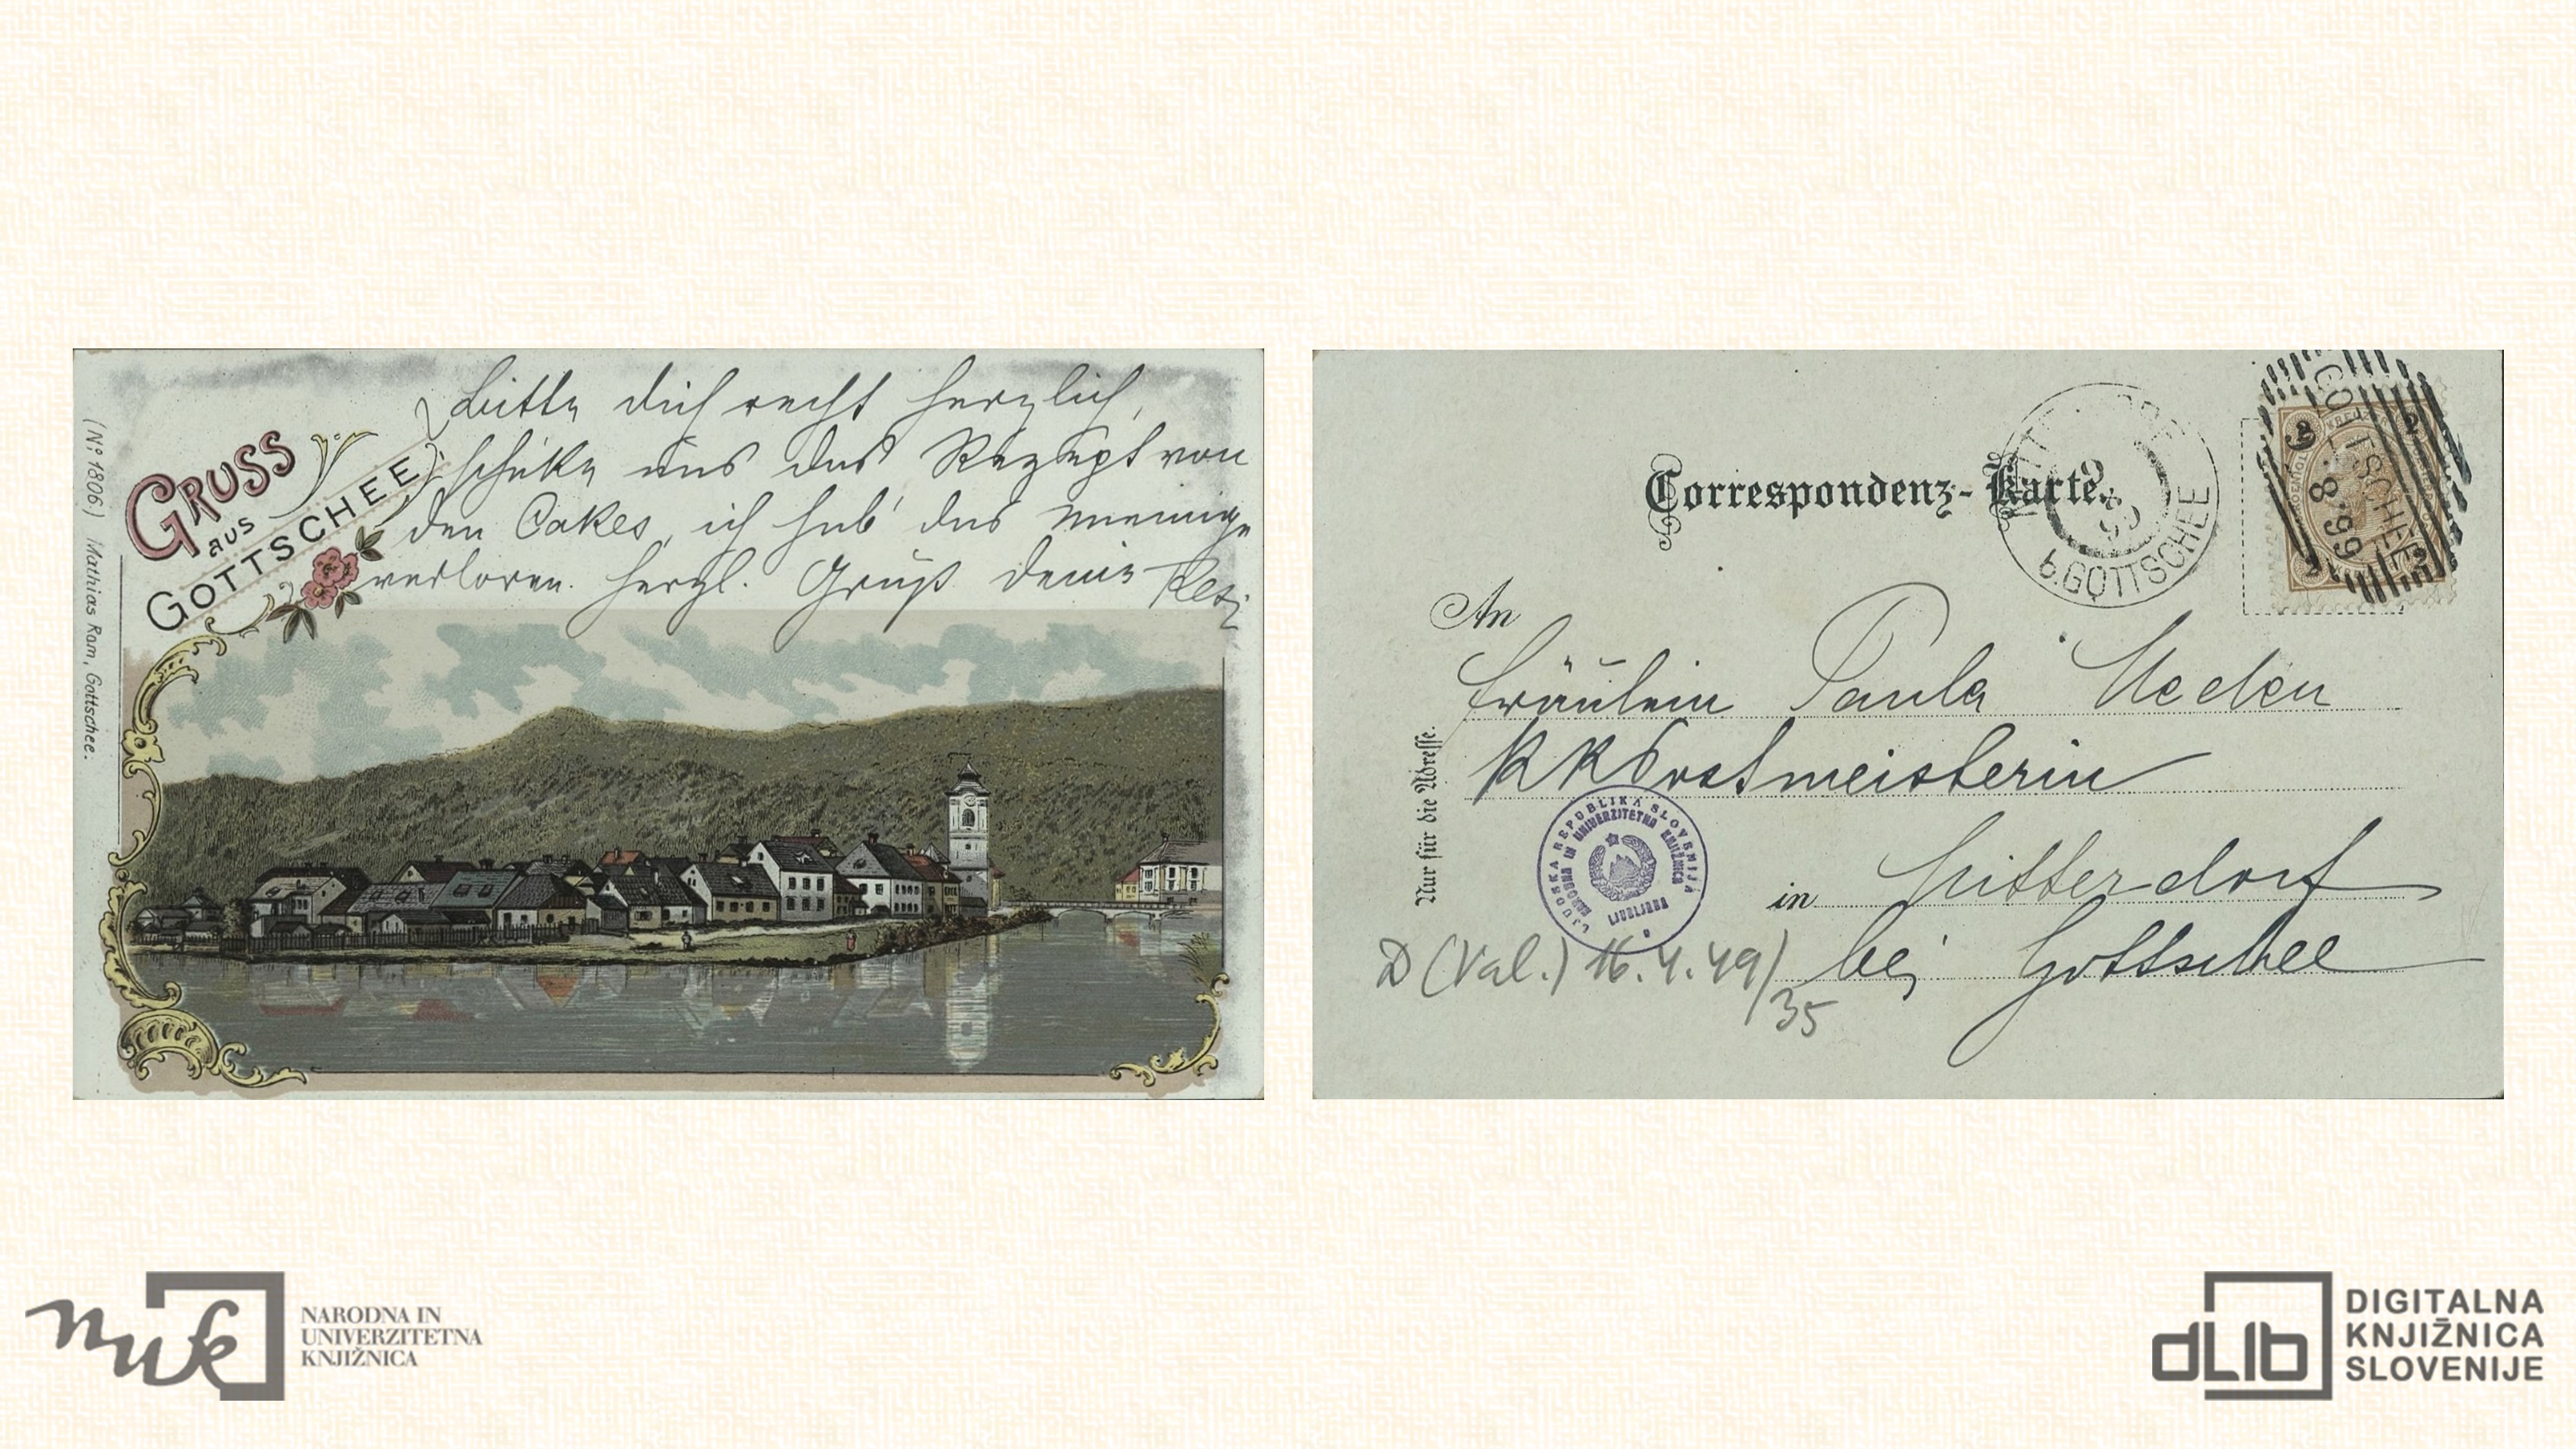 (Nº 1806) Mathias Rom, Gottschee.
GRUSS
aus
GOTTSCHEE
Bitte dich recht herzlich,
schicke uns das Rezept von
den Cakes, ich hab' das meinige
verloren. Herzl. Gruß Deine Resi
Correspondenz-Karte.
b. GOTTSCHEE
GOTTSCHEE
8.99
2
2
An
Fräulein Paula
KK Postmeisterin
in Mitterdorf
bei Gottschee
Nur für die Adresse.
LJUDSKA REPUBLIKA SLOVENIJA
NARODNA IN UNIVERZITETNA KNJIŽNICA
LJUBLJANA
D (Val.) 16.4.49/
35
nuk
NARODNA IN
UNIVERZITETNA
KNJIŽNICA
dLib
DIGITALNA
KNJIŽNICA
SLOVENIJE